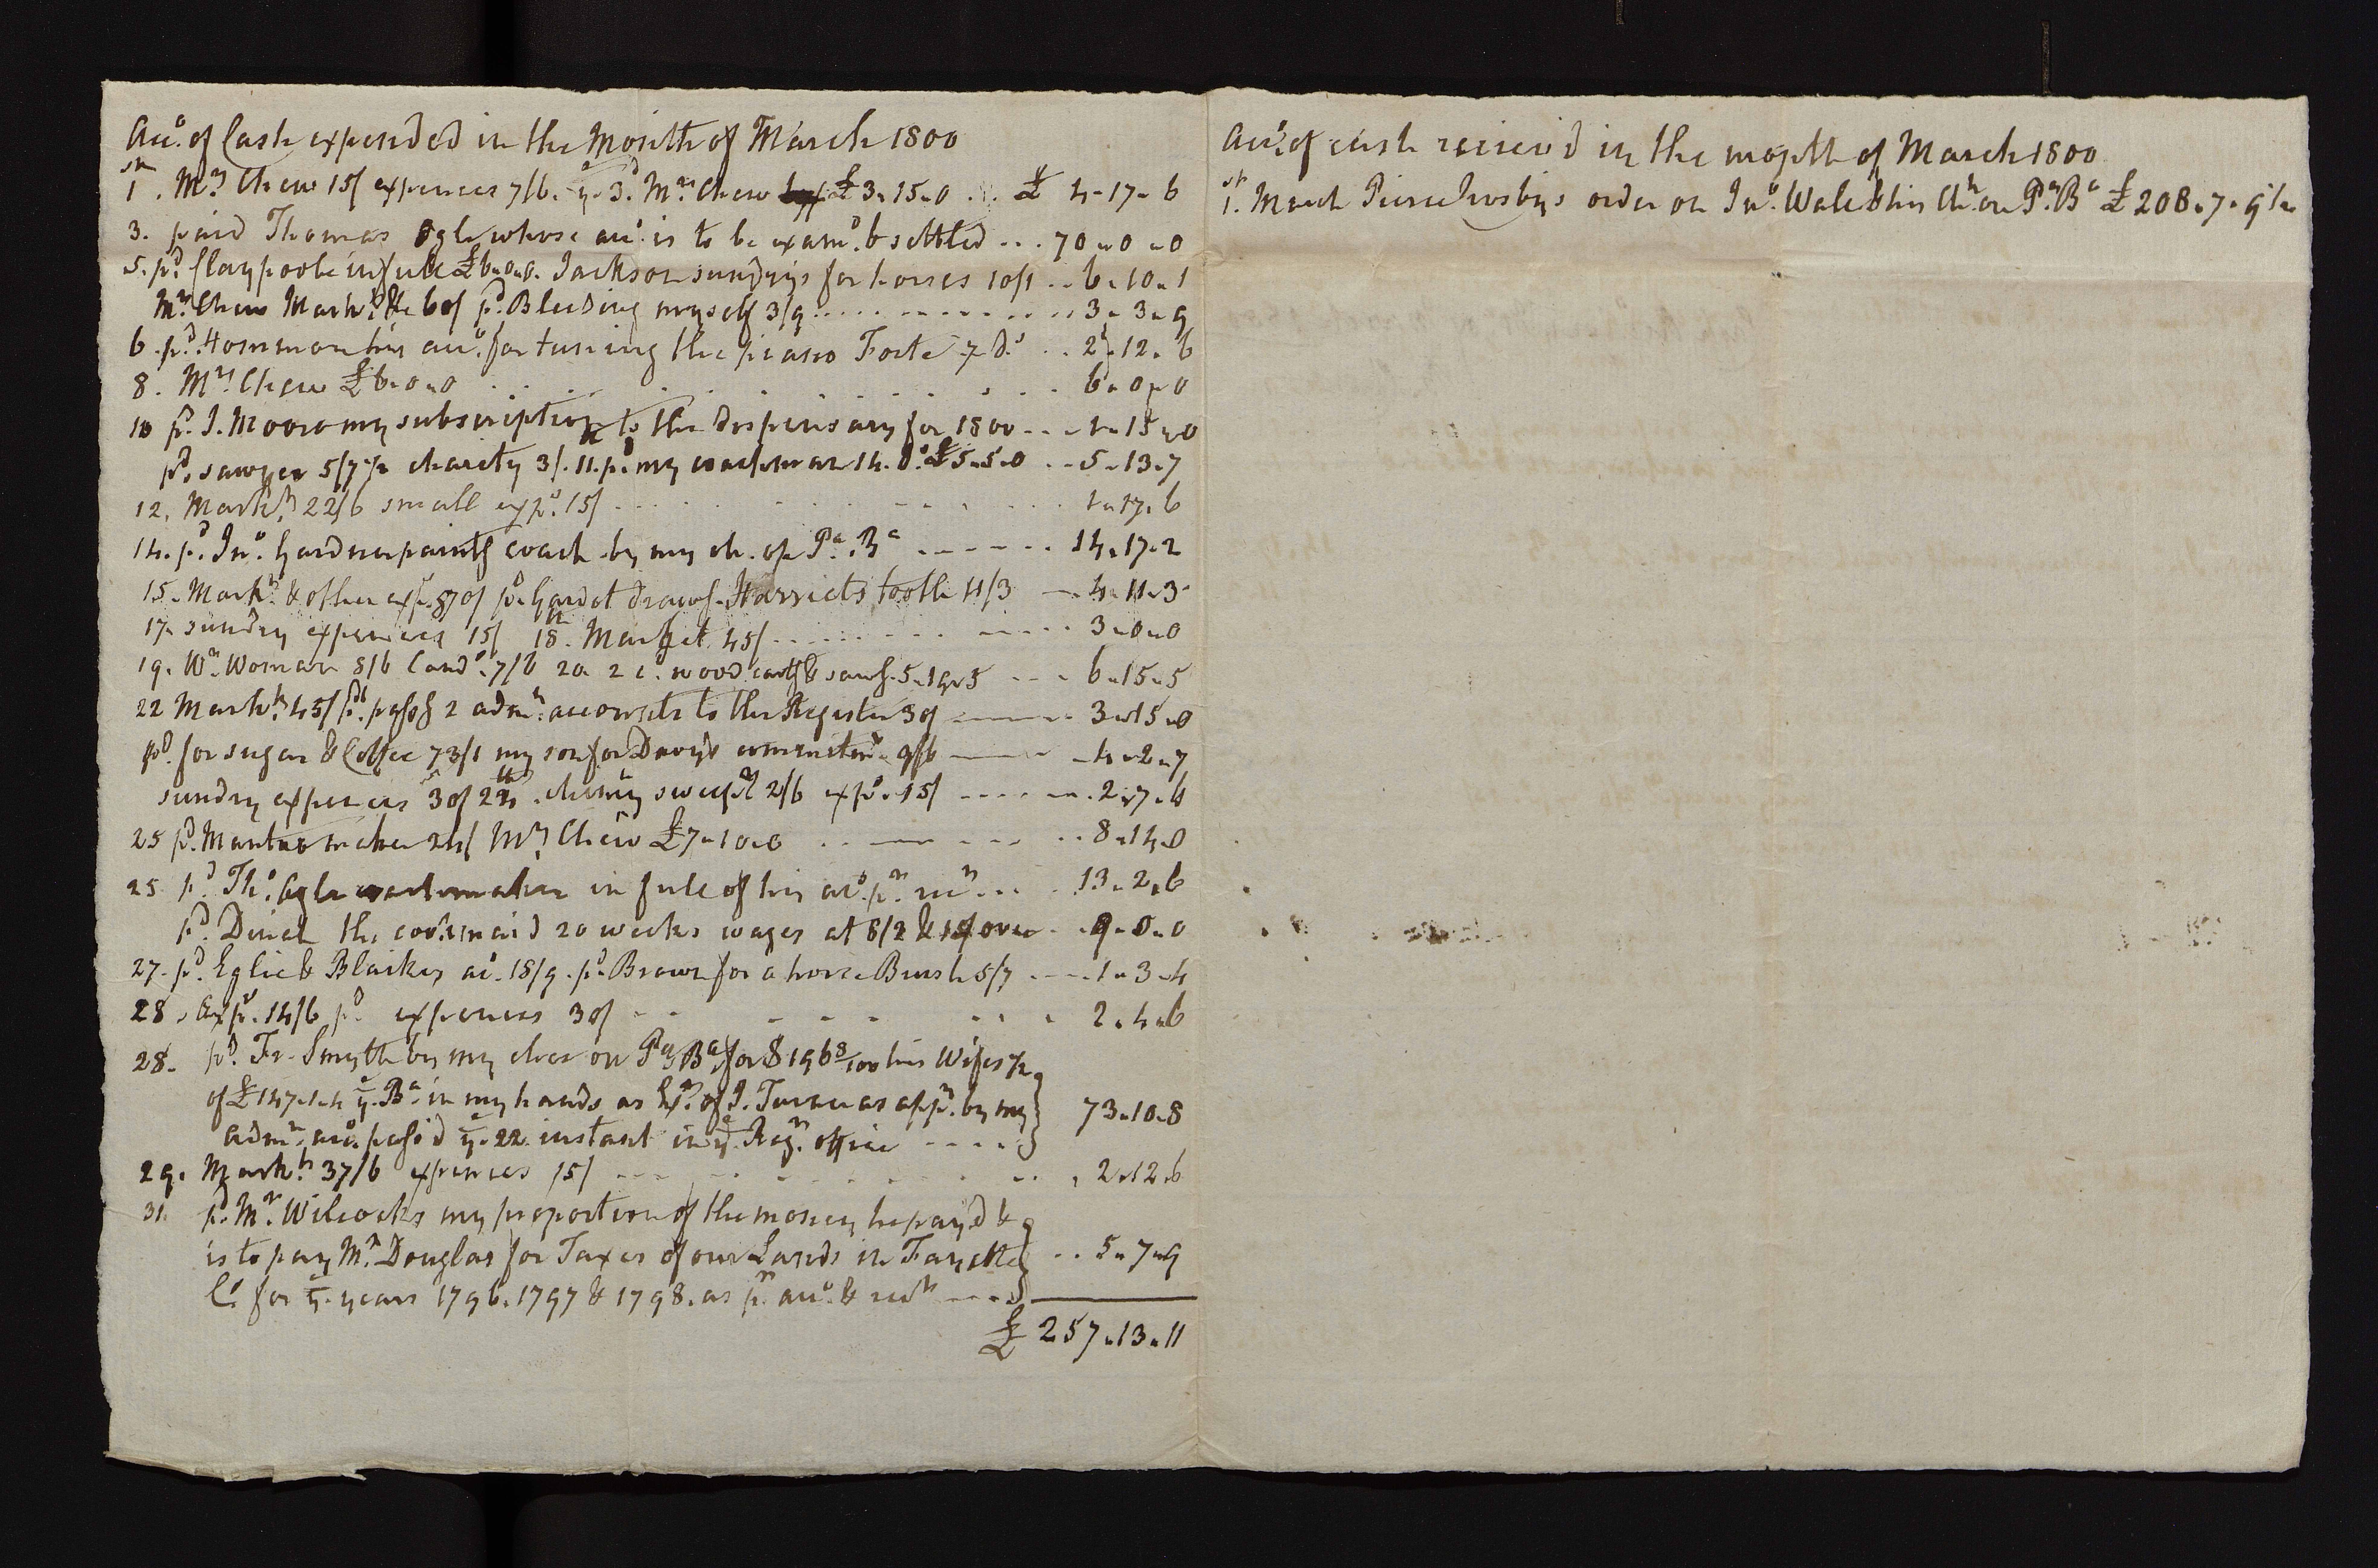 Acco. of Cash expended in the Month of March 1800
1st. Mrs. Chew 15/ expences 7/6. ye. 3d. Mrs. Chew £3.15.0 ... £ 4-17-6
3. paid Thomas Ogle whose acco. is to be examd. & settled ... 70.0.0
5. pd. Claypoole in full £6.0.0. Jackson sundrys for horses 10/1 .. 6.10.1
Mrs. Chew Markt. &c 60/ pd. Bleeding myself 3/9 ........ 3.3.9
6. pd. Hommann his acco. for tuning the piano Forte 7 Ds. .. 2.12.6
8. Mrs. Chew £6.0.0 ... 6.0.0
10 pd. J. Moore my subscription to the Dispensary for 1800 ... 1.15.0
pd. sawyer 5/7½ charity 3/. 11. pd. my coachman 14. Ds. £5.5.0 .. 5.13.7
12. Markt. 22/6 small exps. 15/ ... 1.17.6
14. pd. Jno. Hardner paintg coach by my ch. on Pa. Ba ...... 14.17.2
15. Markt. & other exps. 80/ pd. Gardet drawg. Harriets tooth 11/3 — 4.11.3
17. sundry expences 15/ 18th. Market 45/ ........ 3.0.0
19. Wn. Woman 8/6 Cands. 7/6 20 2 c. wood cartg & sawg. 5.19.5 ... 6.15.5
22 Markt. 45/ pd. passg 2 admn. accounts to the Register 30/ —— 3.15.0
pd. for sugar & Coffee 73/1 my son for Davys 9/6 —— 4.2.7
sundry expences 30/ 24th. chimny sweeps 2/6 exps. 15/ ---- 2.7.6
25 pd. Mantua maker 24/ Mrs. Chew £7.10.0 ... 8.14.0
25 pd. Ths. Ogle coachmaker in full of his acco. pr. rect. ... 13.2.6
pd. Dinah the cookmaid 20 weeks wages at 8/2 & over .. 9.0.0
27. pd. Eglie & Blackey ac. 18/9. pd. Brown for a horse Brush 5/7 ... 1.3.4
28. Exps. 14/6 pd. expences 30/ ... 2.4.6
28. pd. Fr. Smyth by my chec on Pa. Ba. for $196 8/100 his Wifes ½
of £147.1.4 ye. Ba. in my hands as Exr. of J. Turner as appr. by my } 73.10.8
admn. acco. passed ye. 22 instant in ye. Regrs. office ....
29. Markt. 37/6 expences 15/ ... 2.12.6
31. pd. Mr. Wilcocks my proportion of the money he payd &
is to pay Mr. Douglas for Taxes of our Lands in Fayette } .. 5.7.9
Co. for ye. years 1796. 1797 & 1798. as pr. acco. & rect. ....
£ 257.13.11
Acco. of cash recieved in the month of March 1800
1st. March Pierce order on Jno. Wale & his Ch. on Pa. Ba £ 208.7.9½